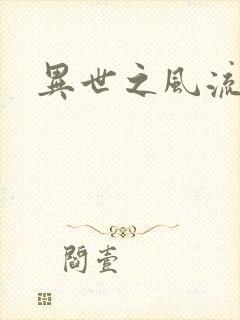 異世之風流
閻壹